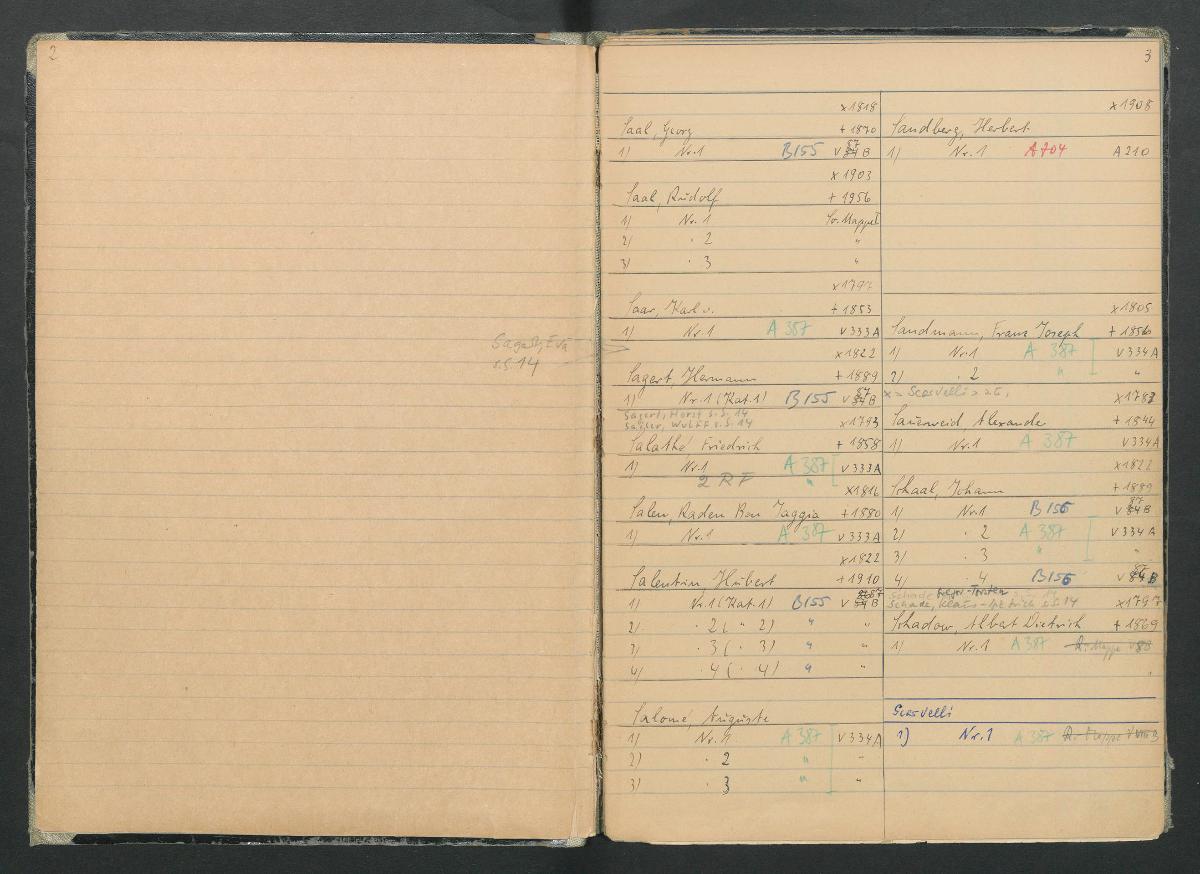 2
3
Sagasty, Eva
s.S. 14
x 1818
Saal, Georg + 1870
1) Nr. 1 B155 V 87 B
x 1903
Saal, Rudolf + 1956
1) Nr. 1 So. Mappe I
2) " 2 "
3) " 3 "
x 1797
Saar, Karl v. + 1853
1) Nr. 1 A 387 V 333 A
x 1822
Sagert, Hermann + 1889
1) Nr. 1 (Kat. 1) B155 V 87 84 B
Sagert, Horst s.S. 14
Wulff s.S. 14 x 1793
Salathé, Friedrich + 1858
1) Nr. 1 A 387 V 333 A
2 RF "
x 1816
Salen, Raden Ben Jaggia + 1880
1) Nr. 1 A 387 V 333 A
x 1822
Salentin Hubert + 1910
1) Nr. 1 (Kat. 1) B155 V 87 84 B
2) " 2 ( " 2) " "
3) " 3 ( " 3) " "
4) " 4 ( " 4) " "
Salomé, Auguste
1) Nr. 1 A 387 V 334 A
2) " 2 " "
3) " 3 " "
x 1908
Sandberg, Herbert
1) Nr. 1 A 704 A 210
x 1805
Sandmann, Franz Joseph + 1856
1) Nr. 1 A 387 V 334 A
2) " 2 " "
x 1783
Sauerweid, Alexander + 1844
1) Nr. 1 A 387 V 334 A
x 1822
Schaal, Johann + 1889
1) Nr. 1 B156 V 87 84 B
2) " 2 A 387 V 334 A
3) " 3 " "
4) " 4 B156 V 87 84 B
Schade, s.S. 14
Schade, Klaus- s.S. 14 x 1797
Schadow, Albert Dietrich + 1869
1) Nr. 1 A 387 R. Mappe V 88
Scasvelli
1) Nr. 1 A 387 R. Mappe